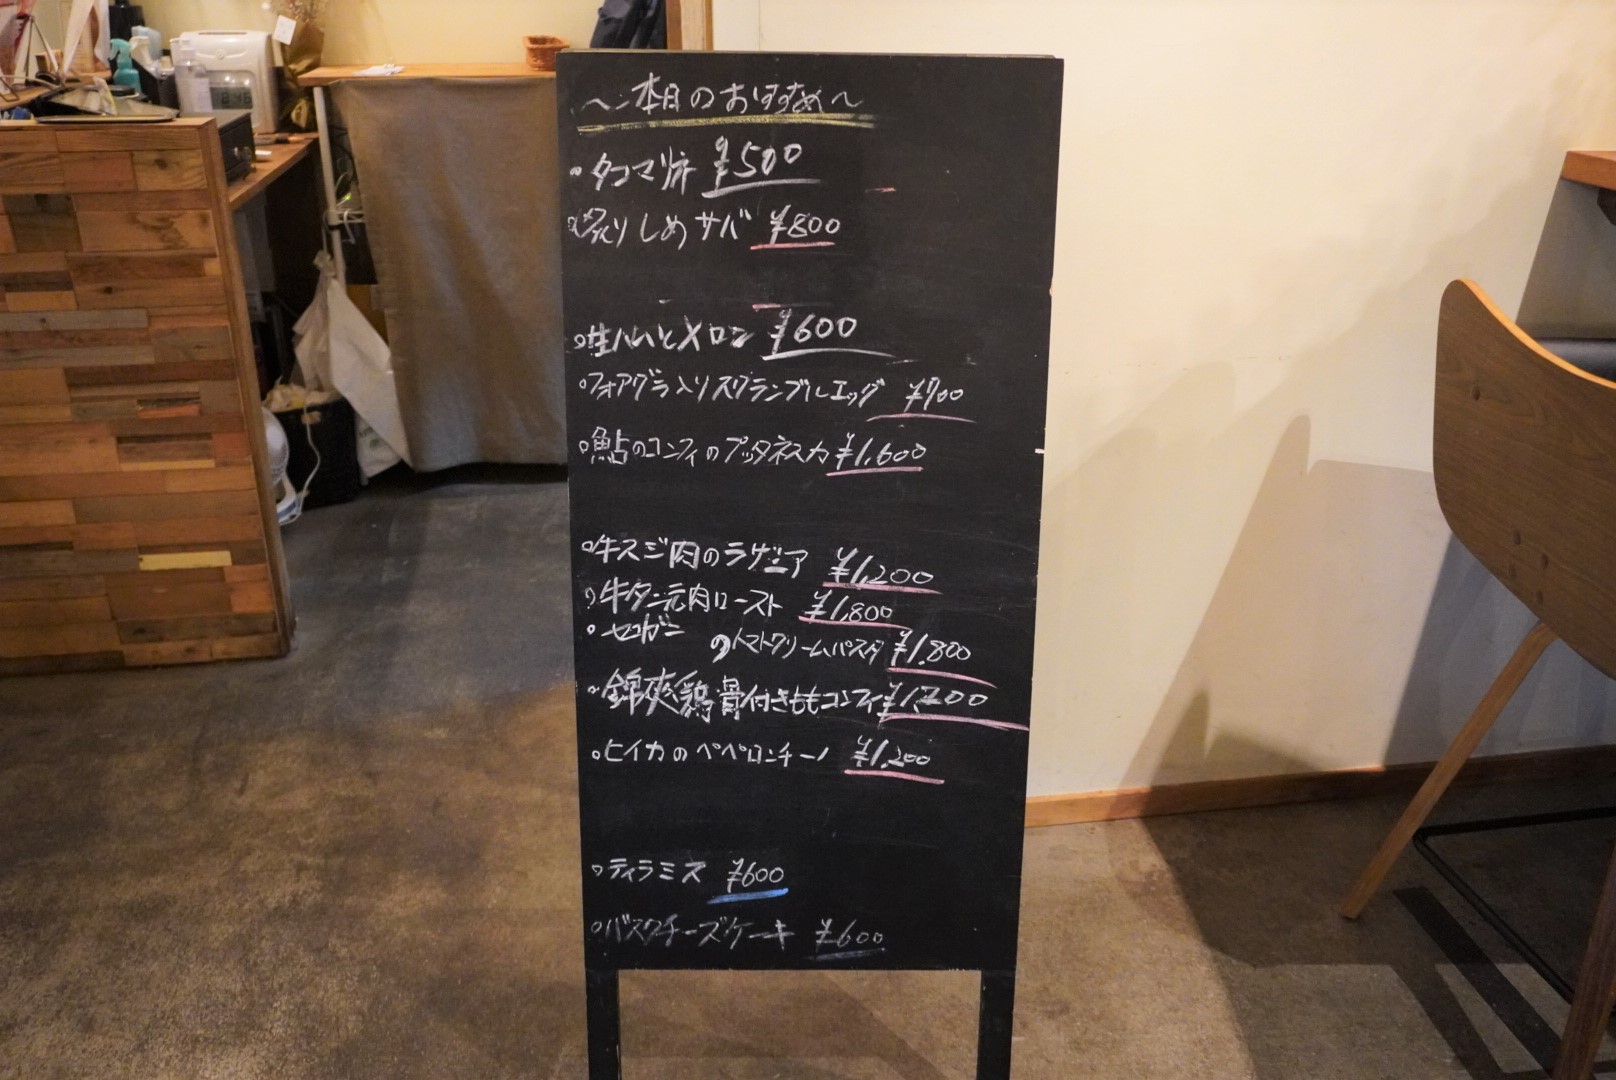 〜本日のおすすめ〜
・タコマリネ ¥500
・炙りしめサバ ¥800
・生ハムとメロン ¥600
・フォアグラ入りスクランブルエッグ ¥700
・鮎のコンフィのプッタネスカ ¥1,600
・牛スジ肉のラザニア ¥1,200
・牛タン元肉ロースト ¥1,800
・セコガニのトマトクリームパスタ ¥1,800
・錦爽鶏骨付きももコンフィ
・ヒイカのペペロンチーノ ¥1,200
・ティラミス ¥600
・バスクチーズケーキ ¥600